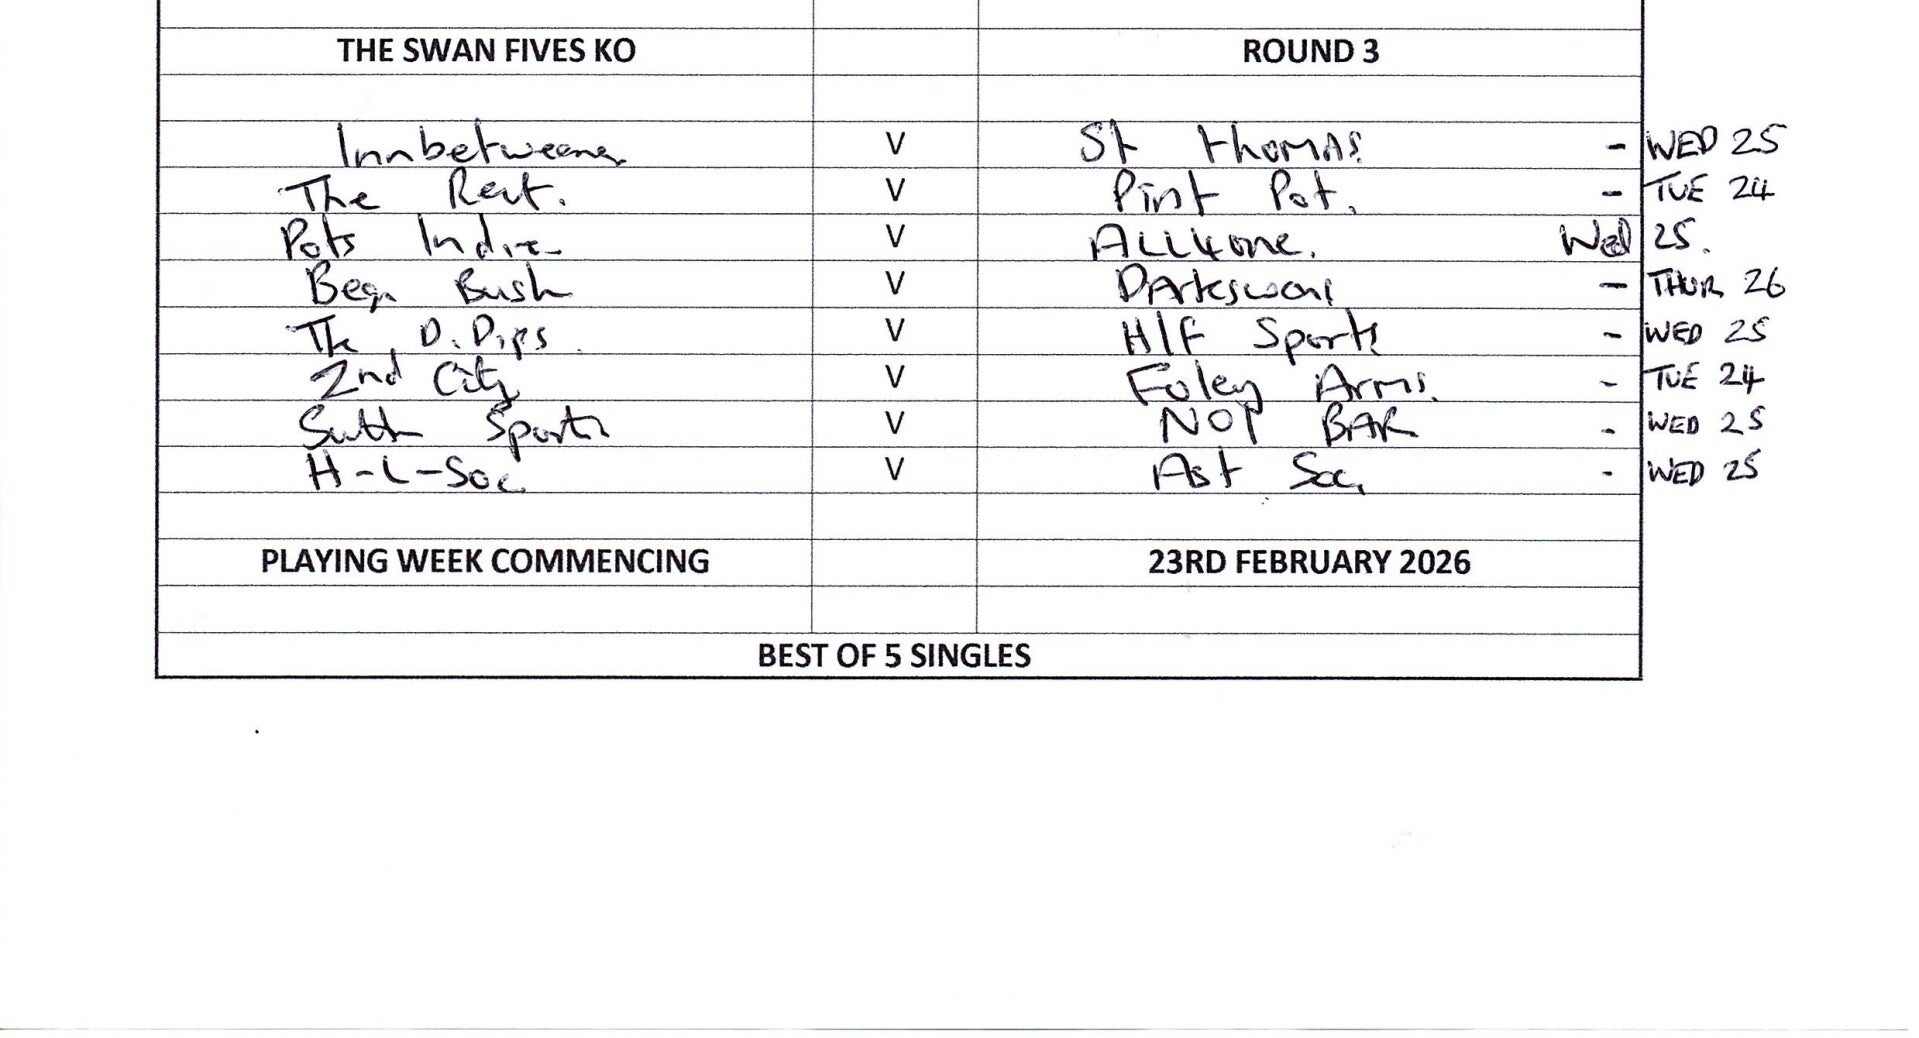 THE SWAN FIVES KO ROUND 3
Innbetweens V St Thomas - WED 25
The Rest. V Pint Pot. - TUE 24
Pots Indie V ALL4one. Wed 25.
Beg. Bush V Darkswans - THUR 26
The D. Dips V H/F Sports - WED 25
2nd City V Foley Arms. - TUE 24
Sutt Sports V NOP BAR - WED 25
H-L-Soc V Ast Soc. - WED 25
PLAYING WEEK COMMENCING 23RD FEBRUARY 2026
BEST OF 5 SINGLES